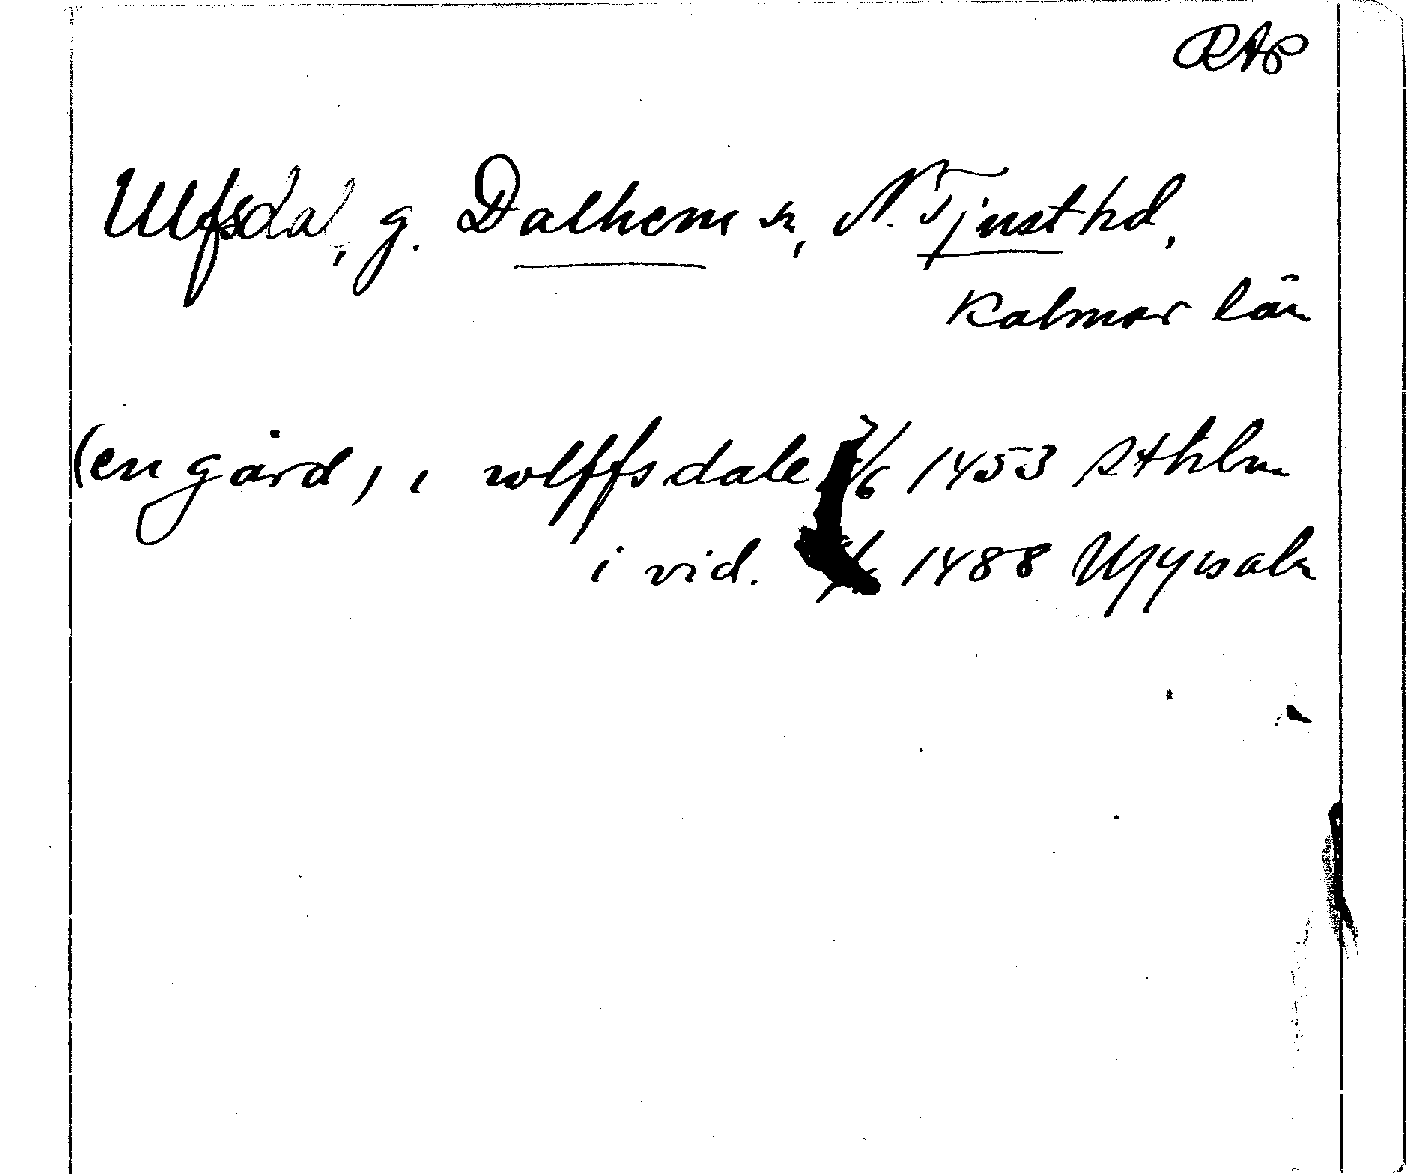 RAp
Ulfsdal, g. Dalhem sn, N. Tjust hd,
Kalmar län
(en gård) i wlffsdale /6 1453 Sthlm
i vid. 1488 Uppsala